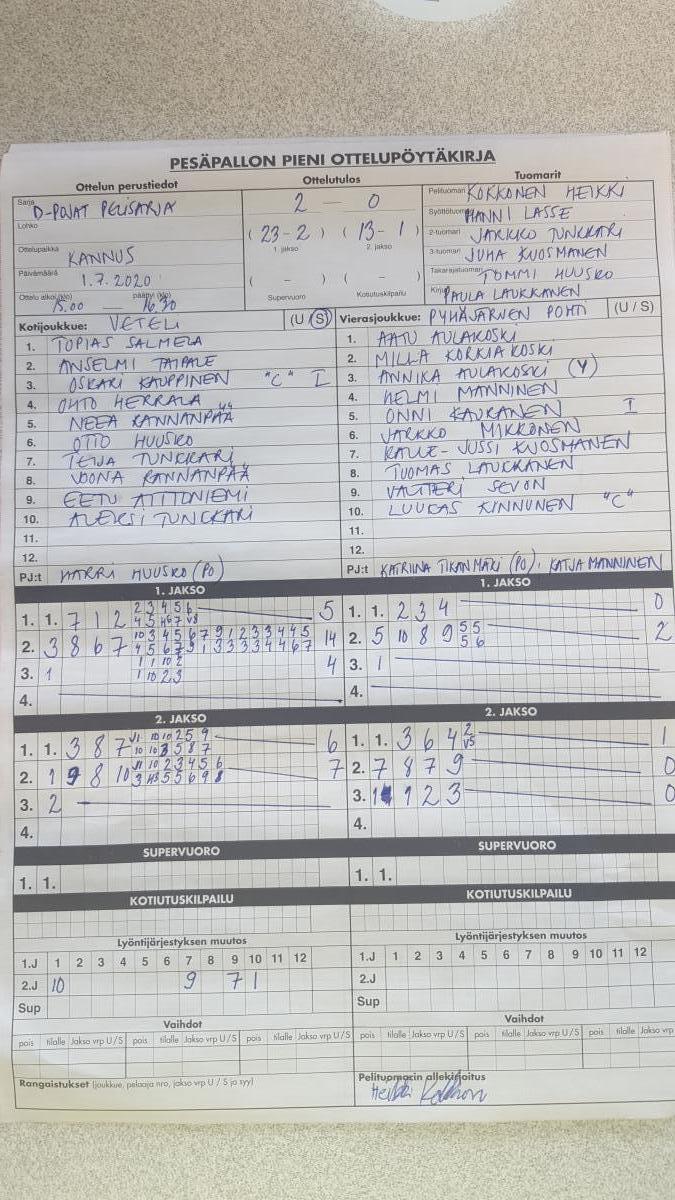 PESÄPALLON PIENI OTTELUPÖYTÄKIRJA
Ottelun perustiedot
Sarja
D-POJAT PELISARJA
Lohko
Ottelupaikka
KANNUS
Päivämäärä
1.7.2020
Ottelu alkoi (klo) 15.00 päättyi (klo) 16.30
Ottelutulos
2 - 0
(23-2) (13-1)
1. jakso 2. jakso
( - ) ( - )
Supervuoro Kotiutuskilpailu
Tuomarit
Pelituomari KOKKONEN HEIKKI
Syöttötuomari HANNI LASSE
2-tuomari JARKKO TUNKKARI
3-tuomari JUHA KUOSMANEN
Takarajatuomari TOMMI HUUSKO
Kirjuri PAULA LAUKKANEN
Kotijoukkue: VETELI (U/S)
1. TOPIAS SALMELA
2. ANSELMI TAIPALE
3. OSKARI KAUPPINEN "C" I
4. OHTO HERRALA
5. NEEA RANNANPÄÄ
6. OTTO HUUSKO
7. TEIJA TUNKKARI
8. VOONA RANNANPÄÄ
9. EETU
10. ALEKSI TUNKKARI
11.
12.
PJ:t HARRI HUUSKO (PO)
Vierasjoukkue: PYHÄJÄRVEN POHTI (U / S)
1. AATU AULAKOSKI
2. MILLA KORKIAKOSKI
3. ANNIKA AULAKOSKI (Y)
4. HELMI MANNINEN
5. ONNI KAURANEN I
6. VARKKO MIKKONEN
7. KALLE-JUSSI KUOSMANEN
8. TUOMAS LAUKKANEN
9. VALTTERI SEVON
10. LUUKAS KINNUNEN "C"
11.
12.
PJ:t KATRIINA TIKANMÄKI (PO), KATJA MANNINEN
1. JAKSO
1. 1. 7 1 2 5
2. 3 8 6 7 14
3. 1 4
4.
1. JAKSO
1. 1. 2 3 4 0
2. 5 10 8 9 5 5 2
5 6
3. 1
4.
2. JAKSO
1. 1. 3 8 7 6
2. 1 9 8 10 7
3. 2
4.
2. JAKSO
1. 1. 3 6 4 2 1
V5
2. 7 8 7 9 0
3. 1 1 2 3 0
4.
SUPERVUORO
1. 1.
SUPERVUORO
1. 1.
KOTIUTUSKILPAILU
KOTIUTUSKILPAILU
Lyöntijärjestyksen muutos
1.J 1 2 3 4 5 6 7 8 9 10 11 12
2.J 10 9 7 1
Sup
Lyöntijärjestyksen muutos
1.J 1 2 3 4 5 6 7 8 9 10 11 12
2.J
Sup
Vaihdot
pois tilalle Jakso vrp U/S pois tilalle Jakso vrp U/S pois tilalle Jakso vrp U/S
Vaihdot
pois tilalle Jakso vrp U/S pois tilalle Jakso vrp U/S pois tilalle Jakso vrp
Rangaistukset (joukkue, pelaaja nro, jakso vrp U / S ja syy)
Pelituomarin allekirjoitus